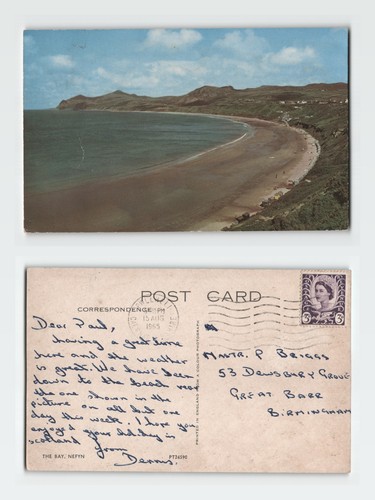 POST CARD
CORRESPONDENCE
15 AUG
1965
3D
Dear Paul,
having a great time
here and the weather
is great. We have been
down to the beach near
the one shown in the
picture on all but one
day this week. I hope you
enjoyed your holiday in
Scotland
from
Dennis.
THE BAY, NEFYN
PT26598
PRINTED IN ENGLAND
MSTR. P BRIGGS
53 DEWSBURY GROVE
GREAT BARR
BIRMINGHAM